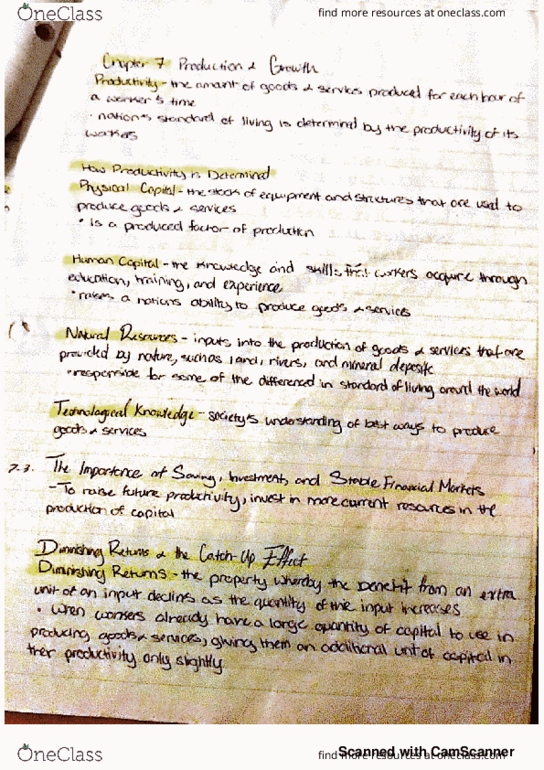 OneClass
find more resources at oneclass.com
Chapter 7 Production & Growth
Productivity - the amount of goods & services produced for each hour of
a worker's time
· nation's standard of living is determined by the productivity of its
workers
How Productivity is Determined
Physical Capital - the stock of equipment and structures that are used to
produce goods & services
• is a produced factor of production
Human Capital - the knowledge and skills that workers acquire through
education, training, and experience
• raises a nation's ability to produce goods & services
Natural Resources - inputs into the production of goods & services that are
provided by nature, such as land, rivers, and mineral deposits
• responsible for some of the differenced in standard of living around the world
Technological Knowledge - society's understanding of best ways to produce
goods & services
7.3. The Importance of Saving, Investment, and Stable Financial Markets
- To raise future productivity, invest in more current resources in the
production of capital
Diminishing Returns & the Catch-Up Effect
Diminishing Returns - the property whereby the benefit from an extra
unit of an input declines as the quantity of the input increases
• when workers already have a large quantity of capital to use in
producing goods & services, giving them an additional unit of capital in
ther productivity only slightly
OneClass
find more resources at oneclass.com
Scanned with CamScanner